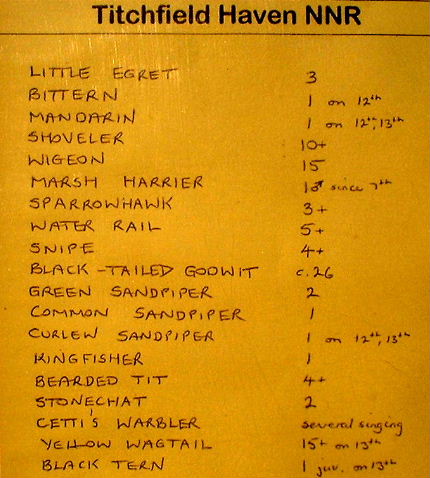 Titchfield Haven NNR
LITTLE EGRET 3
BITTERN 1 on 12th
MANDARIN 1 on 12th, 13th
SHOVELER 10+
WIGEON 15
MARSH HARRIER 1♂ since 7th
SPARROWHAWK 3+
WATER RAIL 5+
SNIPE 4+
BLACK-TAILED GODWIT c.26
GREEN SANDPIPER 2
COMMON SANDPIPER 1
CURLEW SANDPIPER 1 on 12th, 13th
KINGFISHER 1
BEARDED TIT 4+
STONECHAT 2
CETTI'S WARBLER several singing
YELLOW WAGTAIL 15+ on 13th
BLACK TERN 1 juv. on 13th